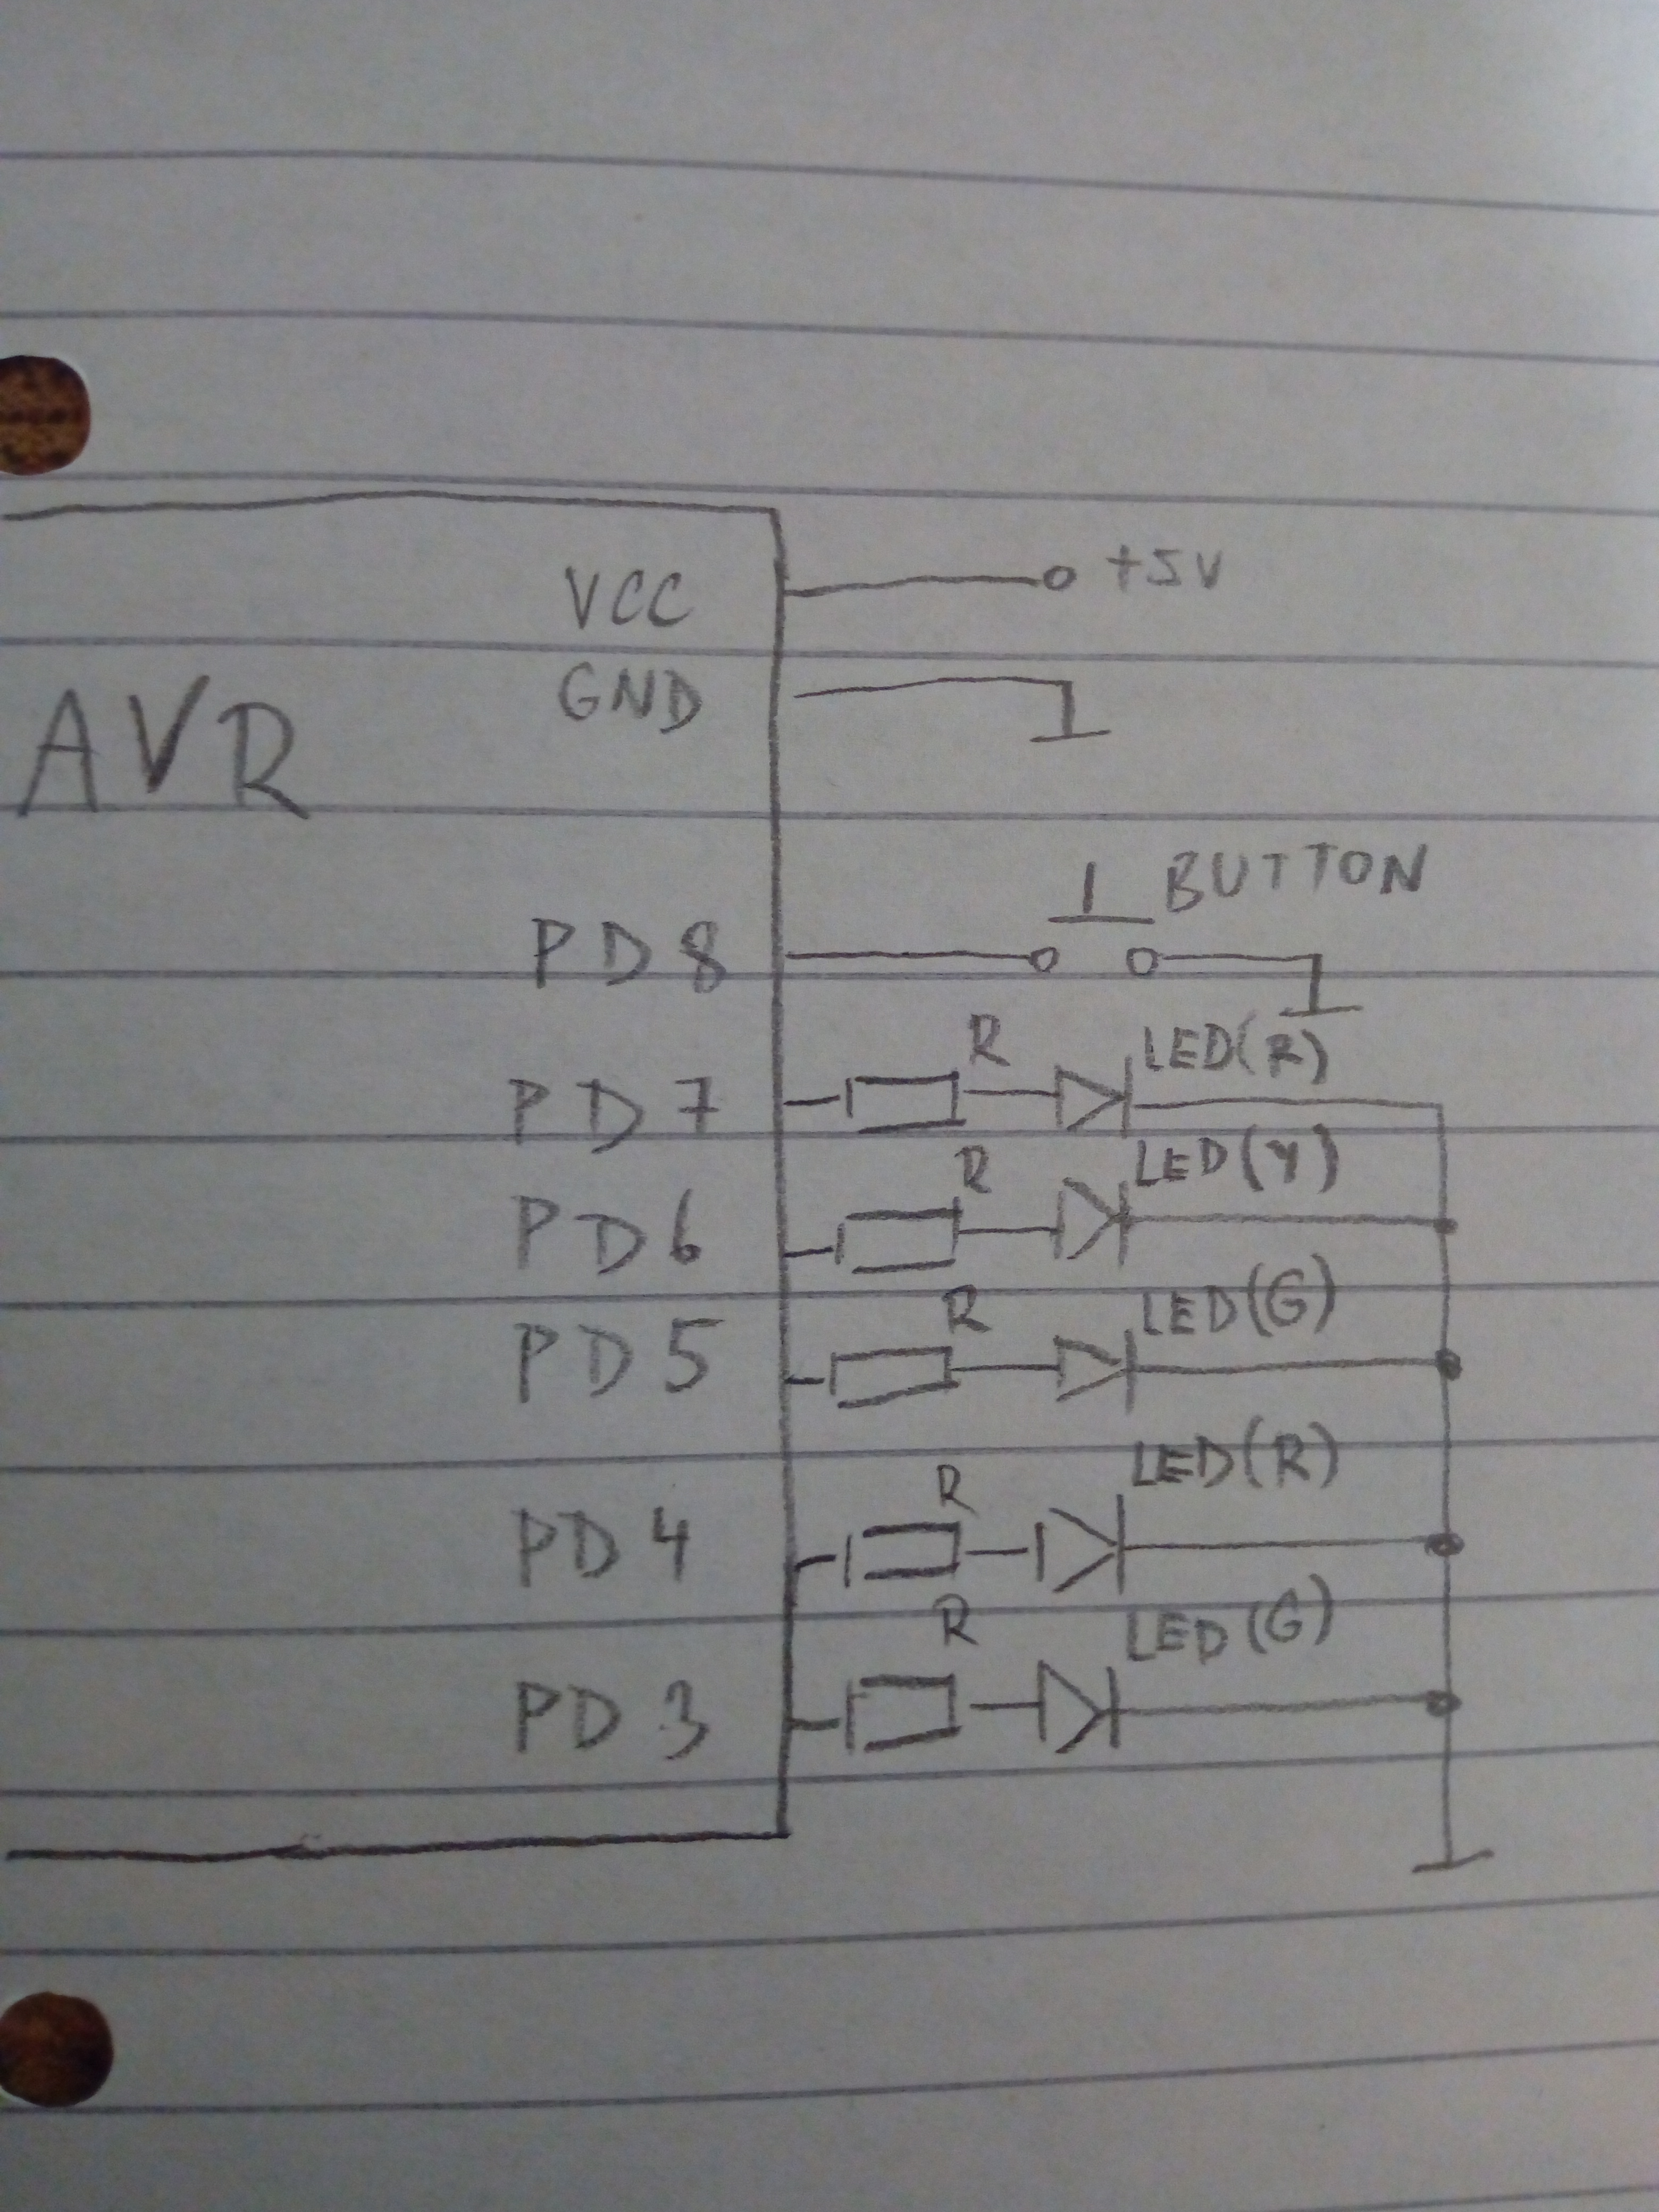 VCC +5V
GND
AVR
BUTTON
PD8
R LED(R)
PD7
R LED(Y)
PD6
R LED(G)
PD5
R LED(R)
PD4
R LED(G)
PD3